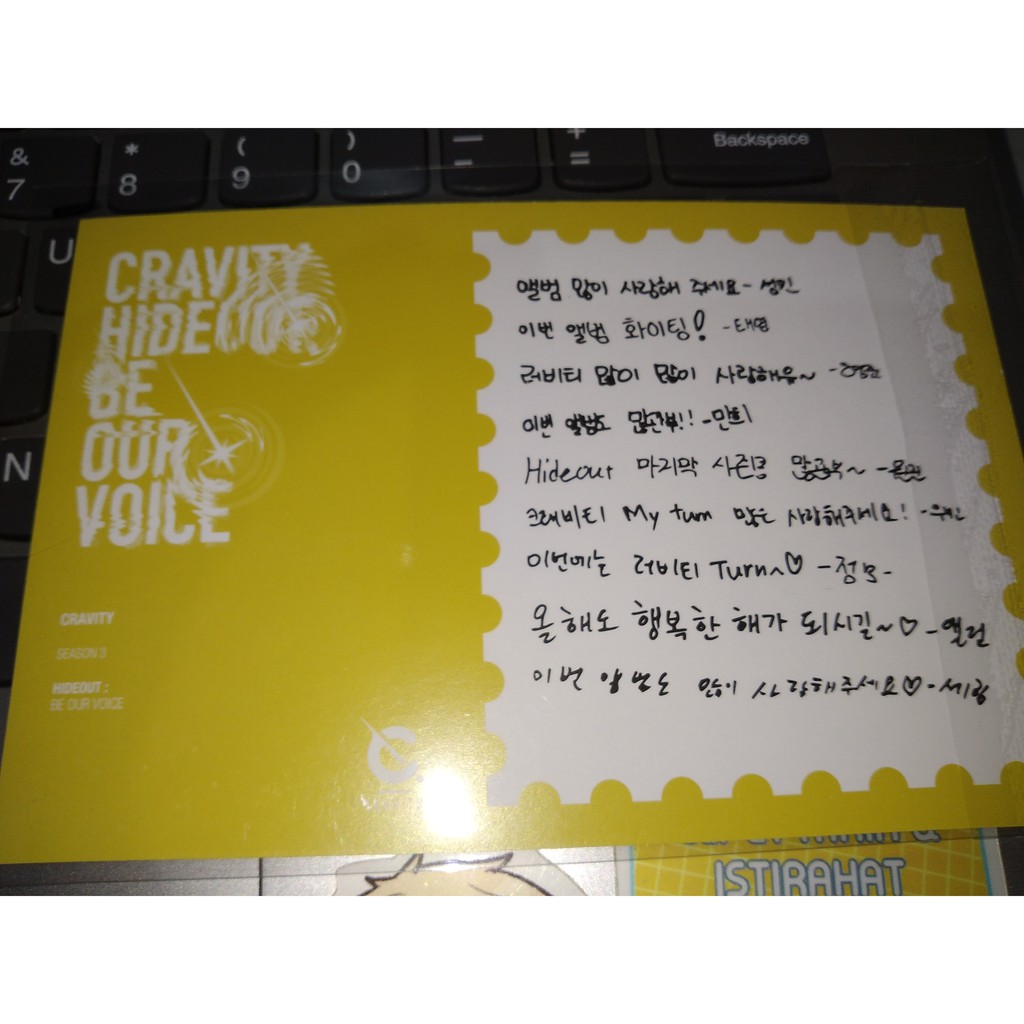 &
7
*
8
(
9
)
0
-
+
=
Backspace
U
N
CRAVITY
HIDEOUT
BE
OUR
VOICE
앨범 많이 사랑해 주세요 - 성민
이번 앨범 화이팅! - 태영
러비티 많이 많이 사랑해용~ - 형준
이번 앨범도 많관부!! - 민희
Hideout 마지막 시즌 많관부~ - 원진
크래비티 My turn 많은 사랑해주세요! - 우빈
이번에는 러비티 Turn~♡ - 정모 -
올해도 행복한 해가 되시길~♡ - 앨런
이번 앨범도 많이 사랑해주세요♡ - 세림
CRAVITY
SEASON 3
HIDEOUT :
BE OUR VOICE
ISTIRAHAT